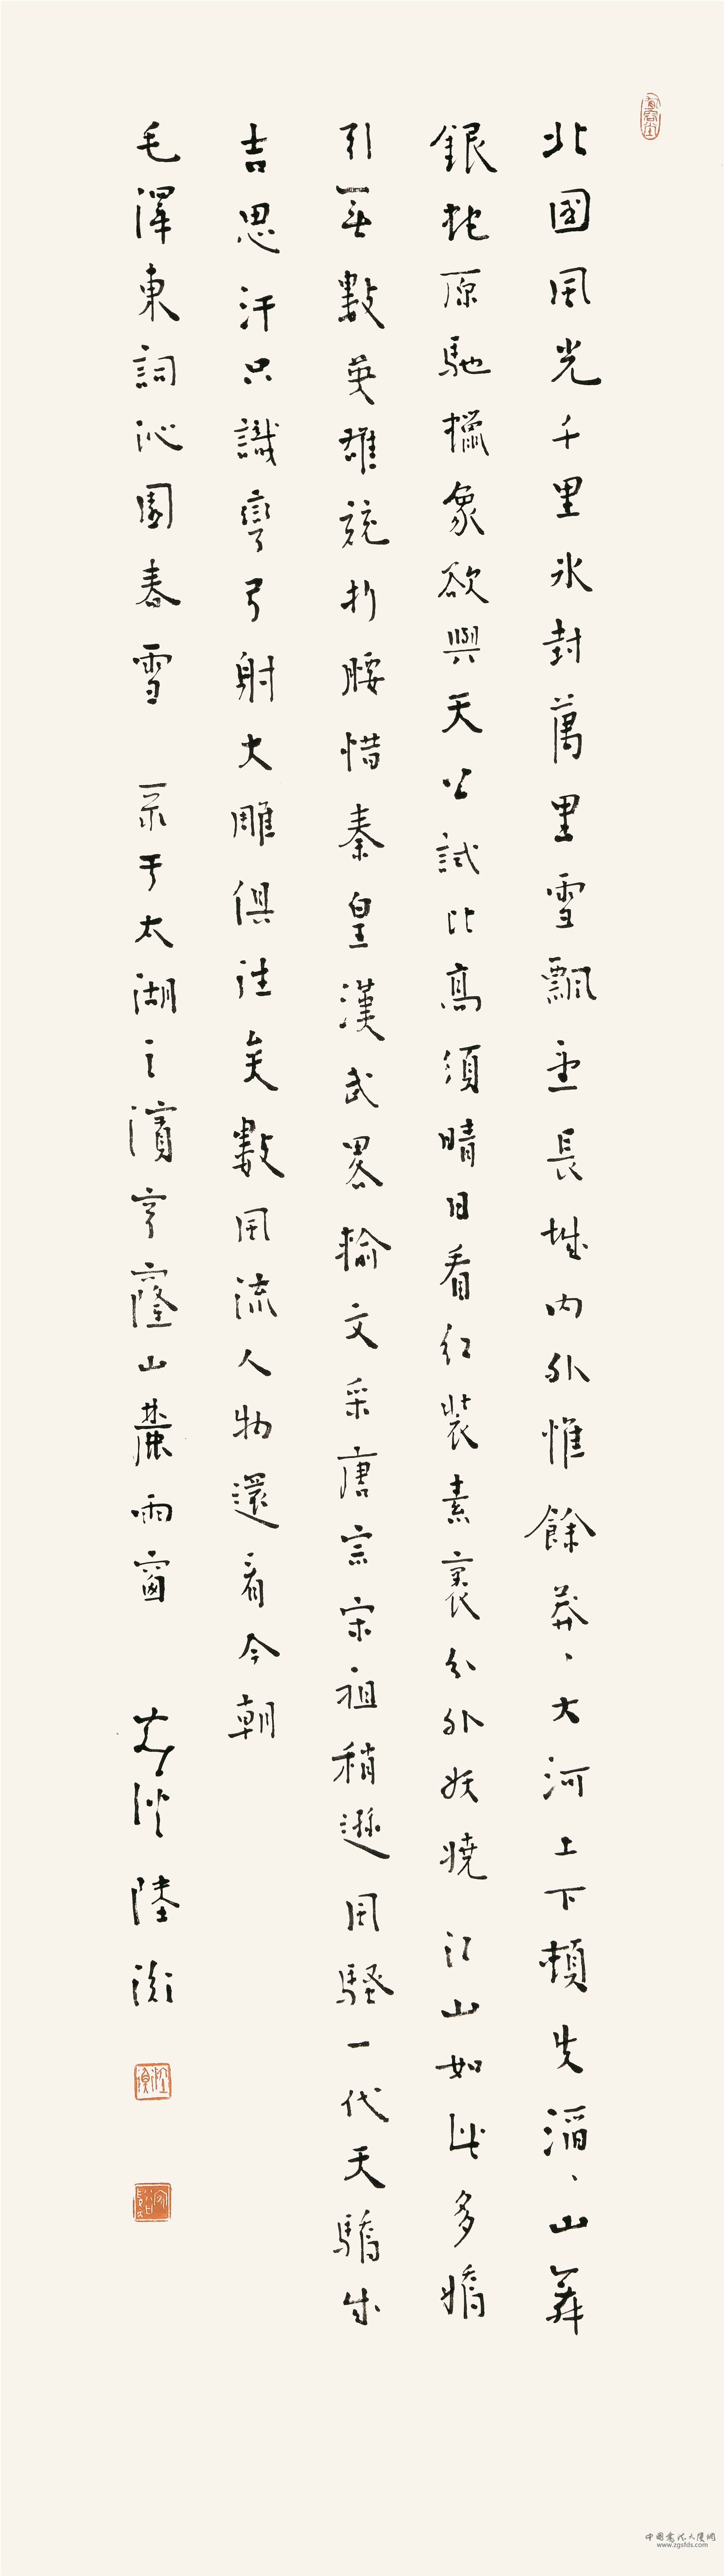 北國風光千里冰封萬里雪飄望長城內外惟餘莽、大河上下頓失滔、山舞
銀蛇原馳蠟象欲與天公試比高須晴日看紅裝素裹分外妖嬈 江山如此多嬌
引無數英雄競折腰惜秦皇漢武畧輸文采唐宗宋祖稍遜風騷一代天驕成
吉思汗只識彎弓射大雕俱往矣數風流人物還看今朝
毛澤東詞沁園春雪 录于太湖之濱穹窿山麓雨窗 陸衡
中国书法大厦网
www.zgsfds.com